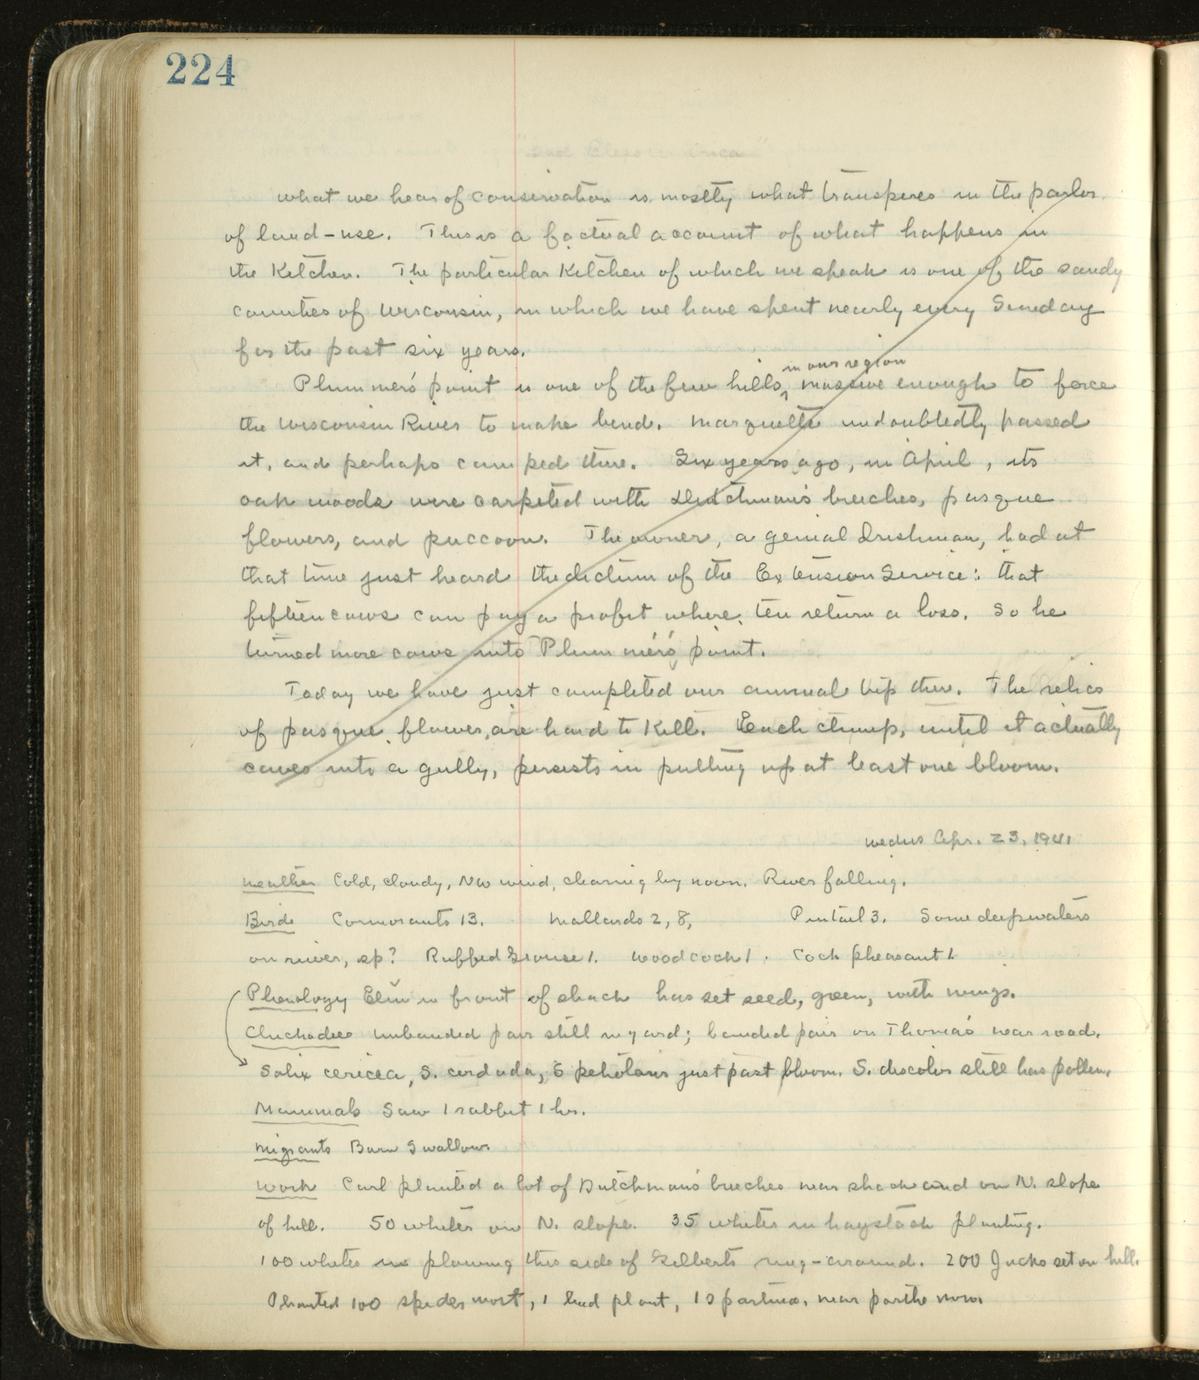 224
what we hear of conservation is mostly what transpires in the parlor
of land-use. This is a factual account of what happens in
the kitchen. The particular kitchen of which we speak is one of the sandy
counties of Wisconsin, in which we have spent nearly every Sunday
for the past six years.
in our region
Plummer's point is one of the few hills, massive enough to force
the Wisconsin River to make bend. Marquette undoubtedly passed
it, and perhaps camped there. Six years ago, in April, its
oak woods were carpeted with Dutchman's breeches, pasque
flowers, and puccoon. The owner, a genial Irishman, had at
that time just heard the dictum of the Extension Service: that
fifteen cows can pay a profit where ten return a loss. So he
turned more cows into Plummer's point.
Today we have just completed our annual trip there. The relics
of pasque flower, are hard to kill. Each clump, until it actually
caves into a gully, persists in putting up at least one bloom.
Wedns Apr. 23, 1941
Weather Cold, cloudy, NW wind, clearing by noon. River falling.
Birds Cormorants 13. Mallards 2, 8, Pintail 3. Some deepwaters
on river, sp? Ruffed Grouse 1. Woodcock 1. Cock pheasant 1
Phenology Elm in front of shack has set seed, green, with wings.
Chickadees unbanded pair still in yard; banded pair on Thomas' near road.
Salix cericea, S. cordata, S petiolaris just past bloom. S. discolor still has pollen.
Mammals Saw 1 rabbit 1 hr.
Migrants Barn Swallows
Work Carl planted a lot of Dutchman's breeches near shack and on N. slope
of hill. 50 whites on N. slope. 35 whites in haystack planting.
100 whites in plowing this side of Gilberts ring-around. 200 Jacks set on hill.
Planted 100 spiderwort, 1 lead plant, 10 near